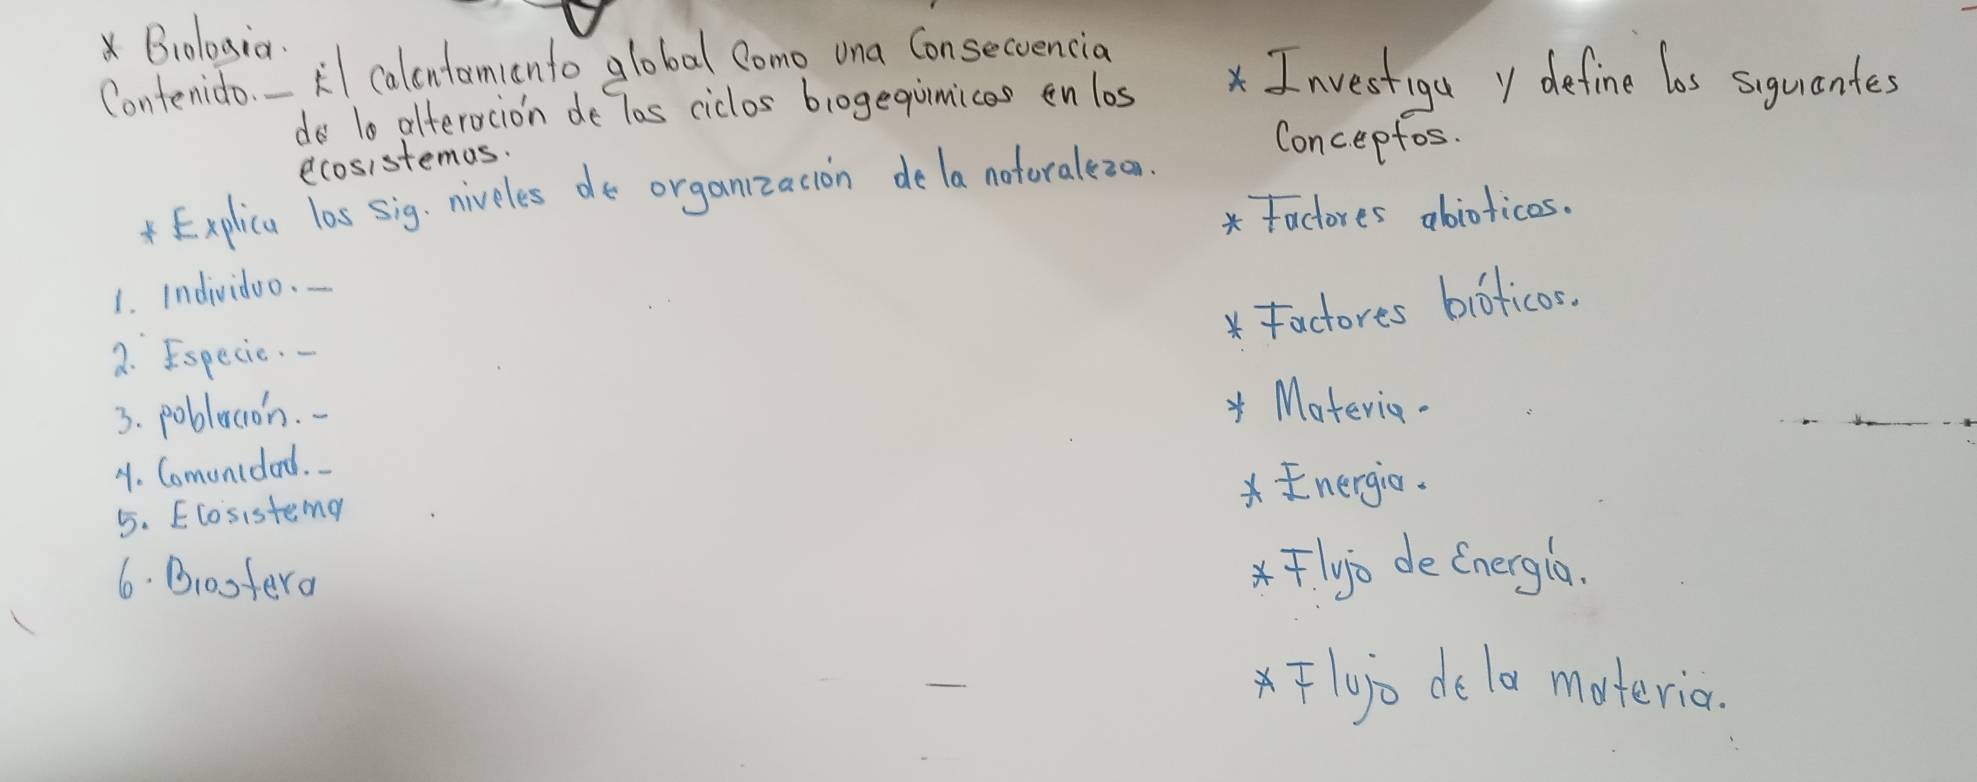 * Biología.
Contenido.- El calentamiento global como una consecuencia
de la alteración de los ciclos biogequimicos en los
ecosistemas.
* Explica los sig. niveles de organización de la naturaleza.
1. Individuo.-
2. Especie.-
3. población.-
4. Comunidad.-
5. Ecosistema
6. Biosfera
* Investiga y define los siguientes
Conceptos.
* Factores abioticos.
* Factores bióticos.
* Materia.
* Energia.
* Flujo de Energía.
* Flujo de la materia.